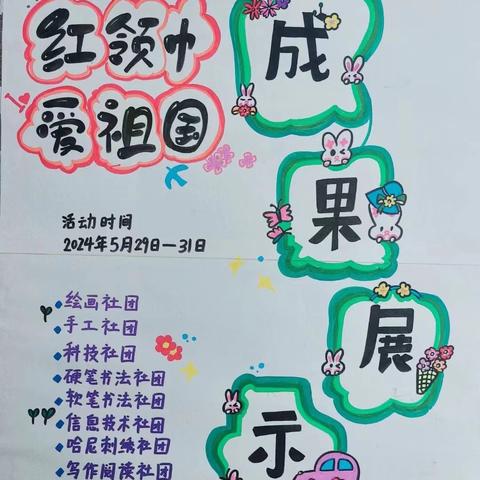 红领巾
爱祖国
成
果
展
示
活动时间
2024年5月29日—31日
绘画社团
手工社团
科技社团
硬笔书法社团
软笔书法社团
信息技术社团
哈尼刺绣社团
写作阅读社团